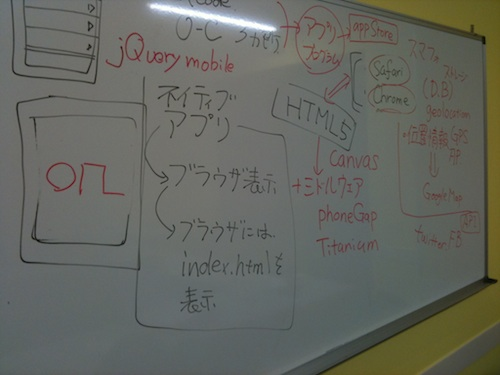 code
O-C
jQuary mobile
アプリ
プログラム
appStore
Safari
Chrome
スマフの
ストレージ
(D.B)
geolocation
・位置情報 GPS
GoogleMap
API
twitter FB
HTML5
canvas
+ミドルウェア
phoneGap
Titanium
ネイティブ
アプリ
ブラウザ表示
ブラウザには
index.htmlを
表示